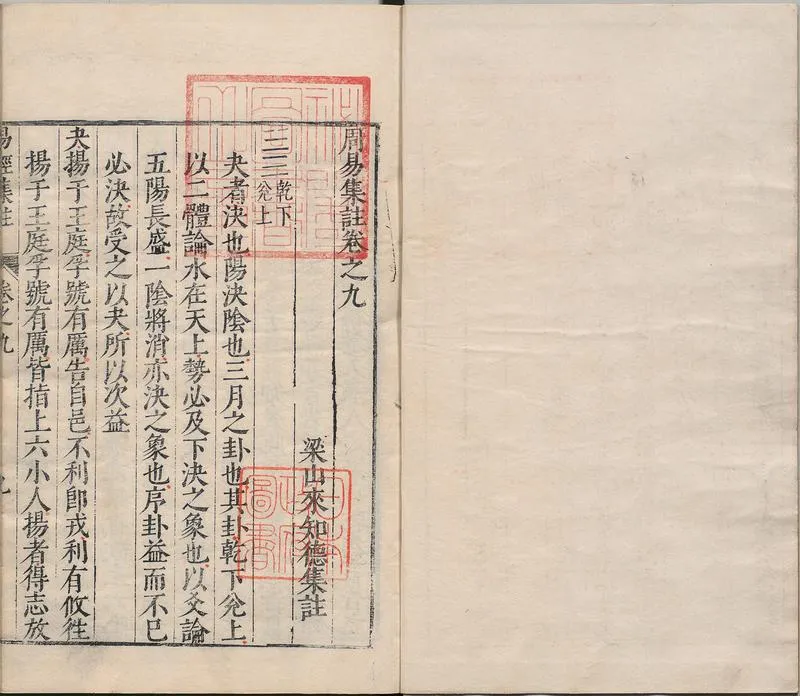 周易集註卷之九
梁山來知德集註
乾下
兌上
夬者決也陽決陰也三月之卦也其卦乾下兌上
以二體論水在天上勢必及下決之象也以爻論
五陽長盛一陰將消亦決之象也序卦益而不已
必決故受之以夬所以次益
夬揚于王庭孚號有厲告自邑不利卽戎利有攸往
揚于王庭孚號有厲皆指上六小人揚者得志放
易經集註 卷之九